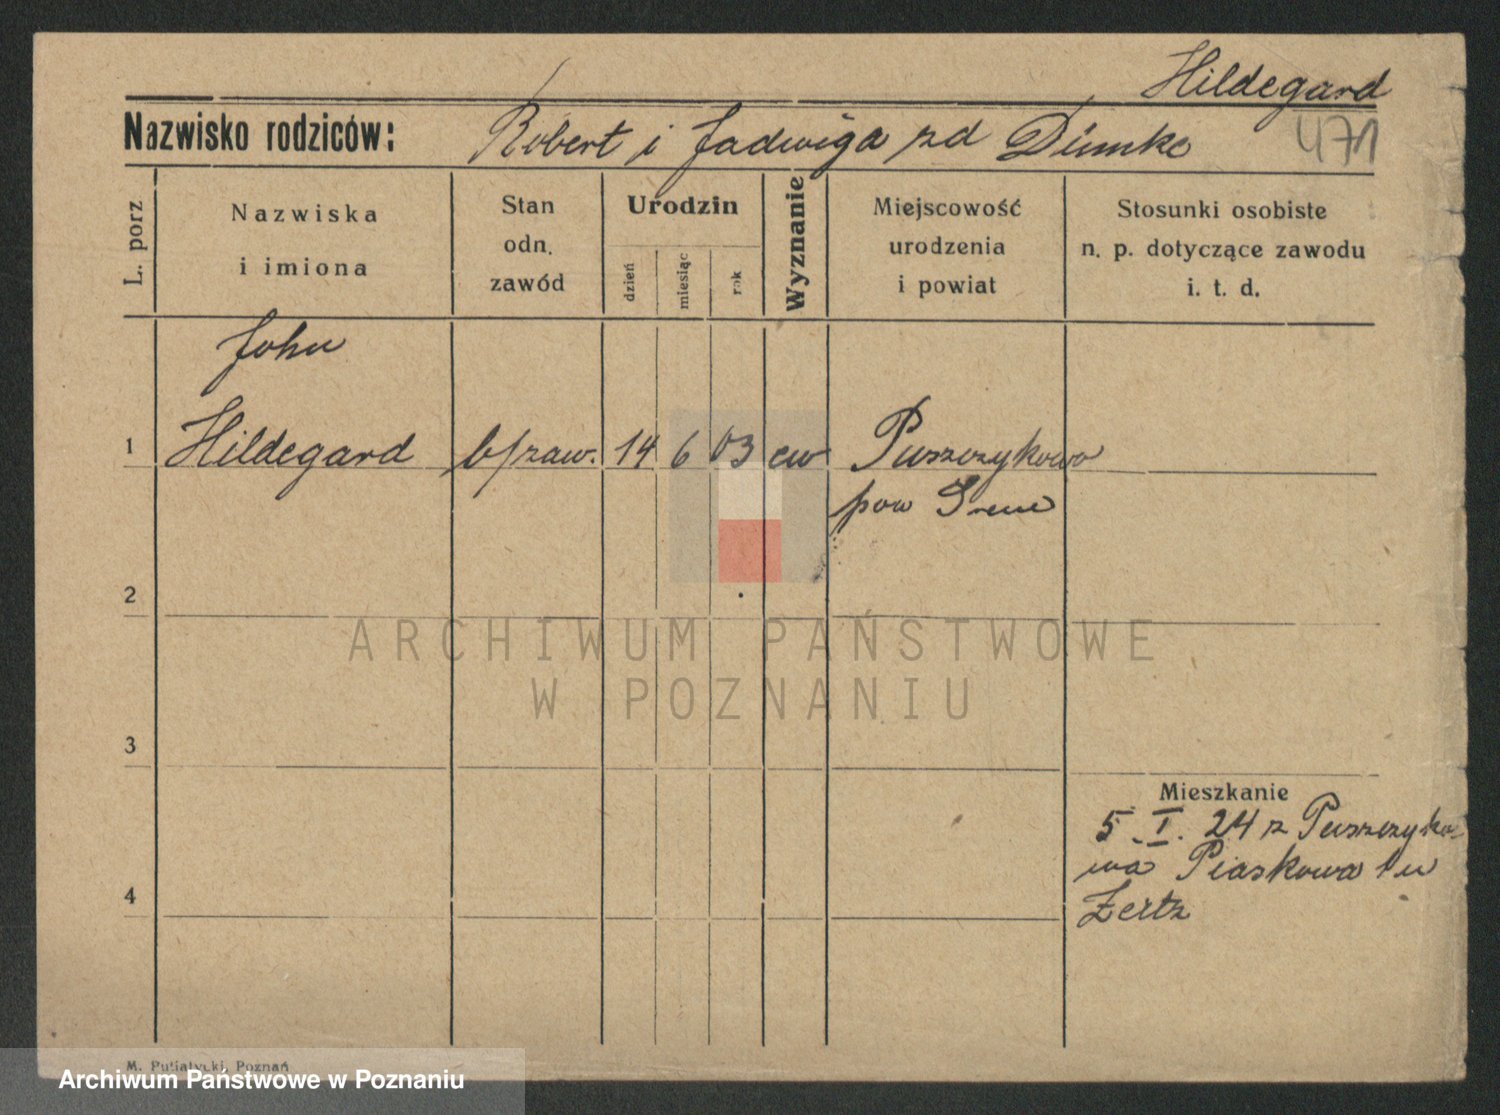 Hildegard
Nazwisko rodziców: Robert i Jadwiga zd Dümke
471
L. porz
Nazwiska
i imiona
Stan
odn.
zawód
Urodzin
dzień
miesiąc
rok
Wyznanie
Miejscowość
urodzenia
i powiat
Stosunki osobiste
n. p. dotyczące zawodu
i. t. d.
John
1 Hildegard b/zaw. 14 6 03 ew Puszczykowo
pow Śrem
2
ARCHIWUM PAŃSTWOWE
W POZNANIU
3
Mieszkanie
5. I. 24 z Puszczyko-
wa Piaskowa 1 u
4
Zertz
M. Putiatycki, Poznań
Archiwum Państwowe w Poznaniu